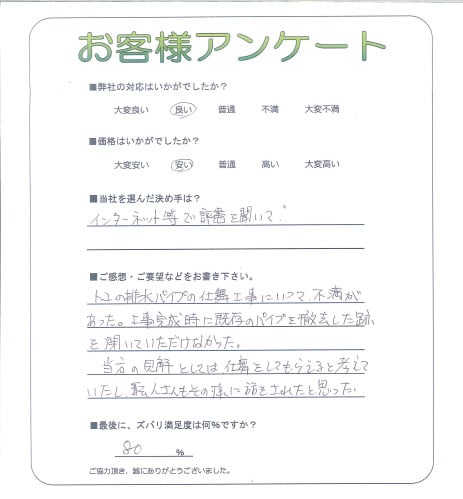 お客様アンケート
■弊社の対応はいかがでしたか?
大変良い 良い 普通 不満 大変不満
■価格はいかがでしたか?
大変安い 安い 普通 高い 大変高い
■当社を選んだ決め手は?
インターネット等で評番を聞いて。
■ご感想・ご要望などをお書き下さい。
トユの排水パイプの仕舞工事について、不満が
あった。工事完成時に既存のパイプを撤去した跡
を聞いていただけなかった。
当方の見解としては仕舞をしてもらえると考えて
いたし、職人さんもその様に話をされたと思った
■最後に、ズバリ満足度は何%ですか?
80 %
ご協力頂き、誠にありがとうございました。